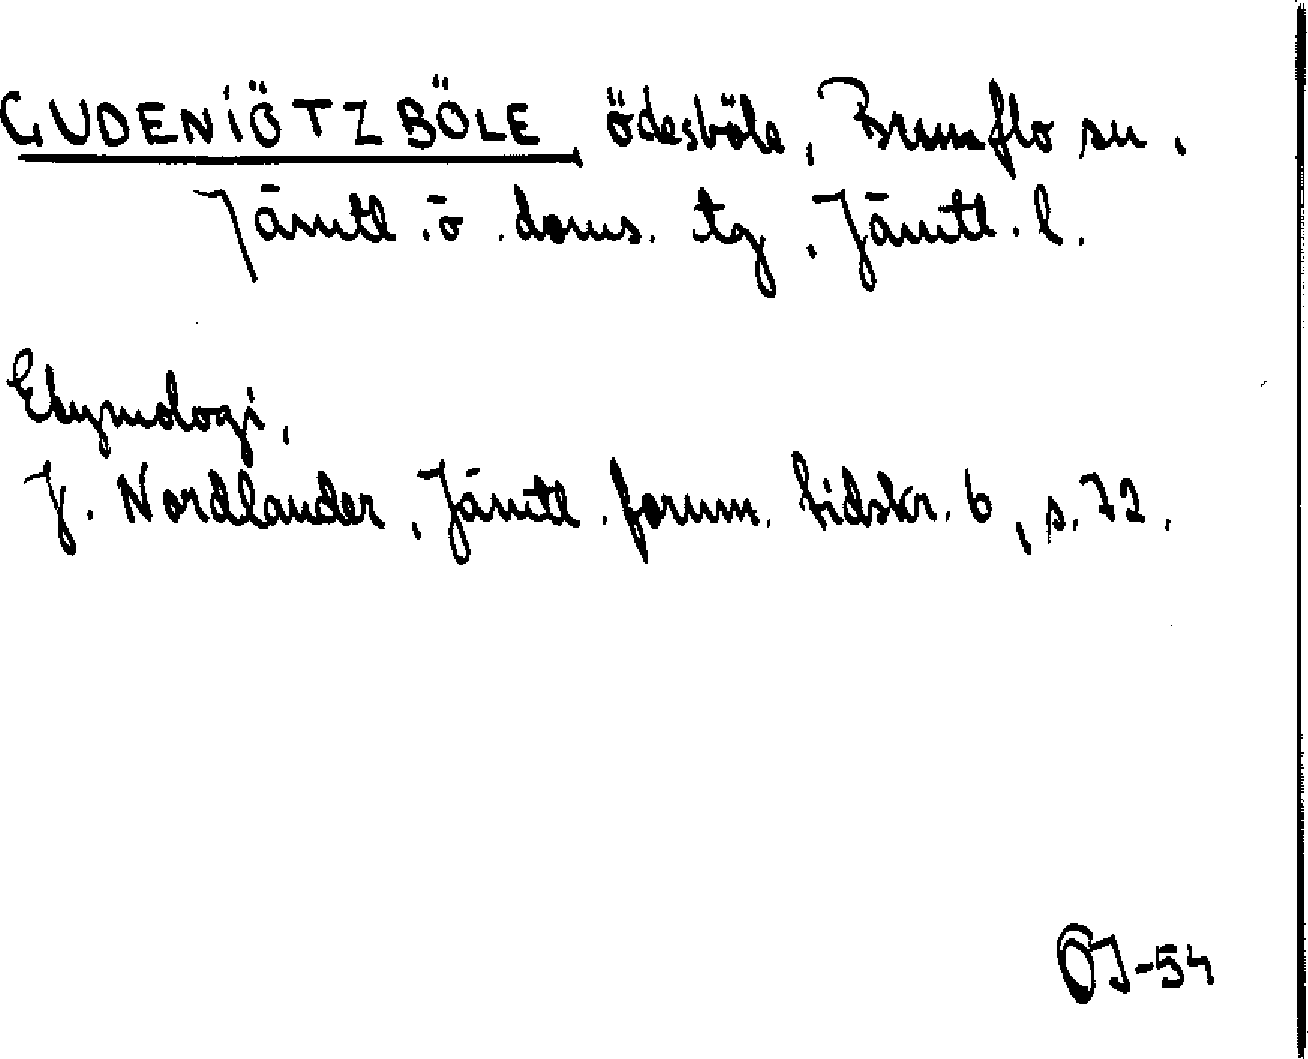 GUDENIÖTZBÖLE, ödesböle, Brunflo sn.
Jämtl. ö. doms. tg, Jämtl. l.
Etymologi,
J. Nordlander, Jämtl. fornm. tidskr. 6, s. 72.
ÖJ-54